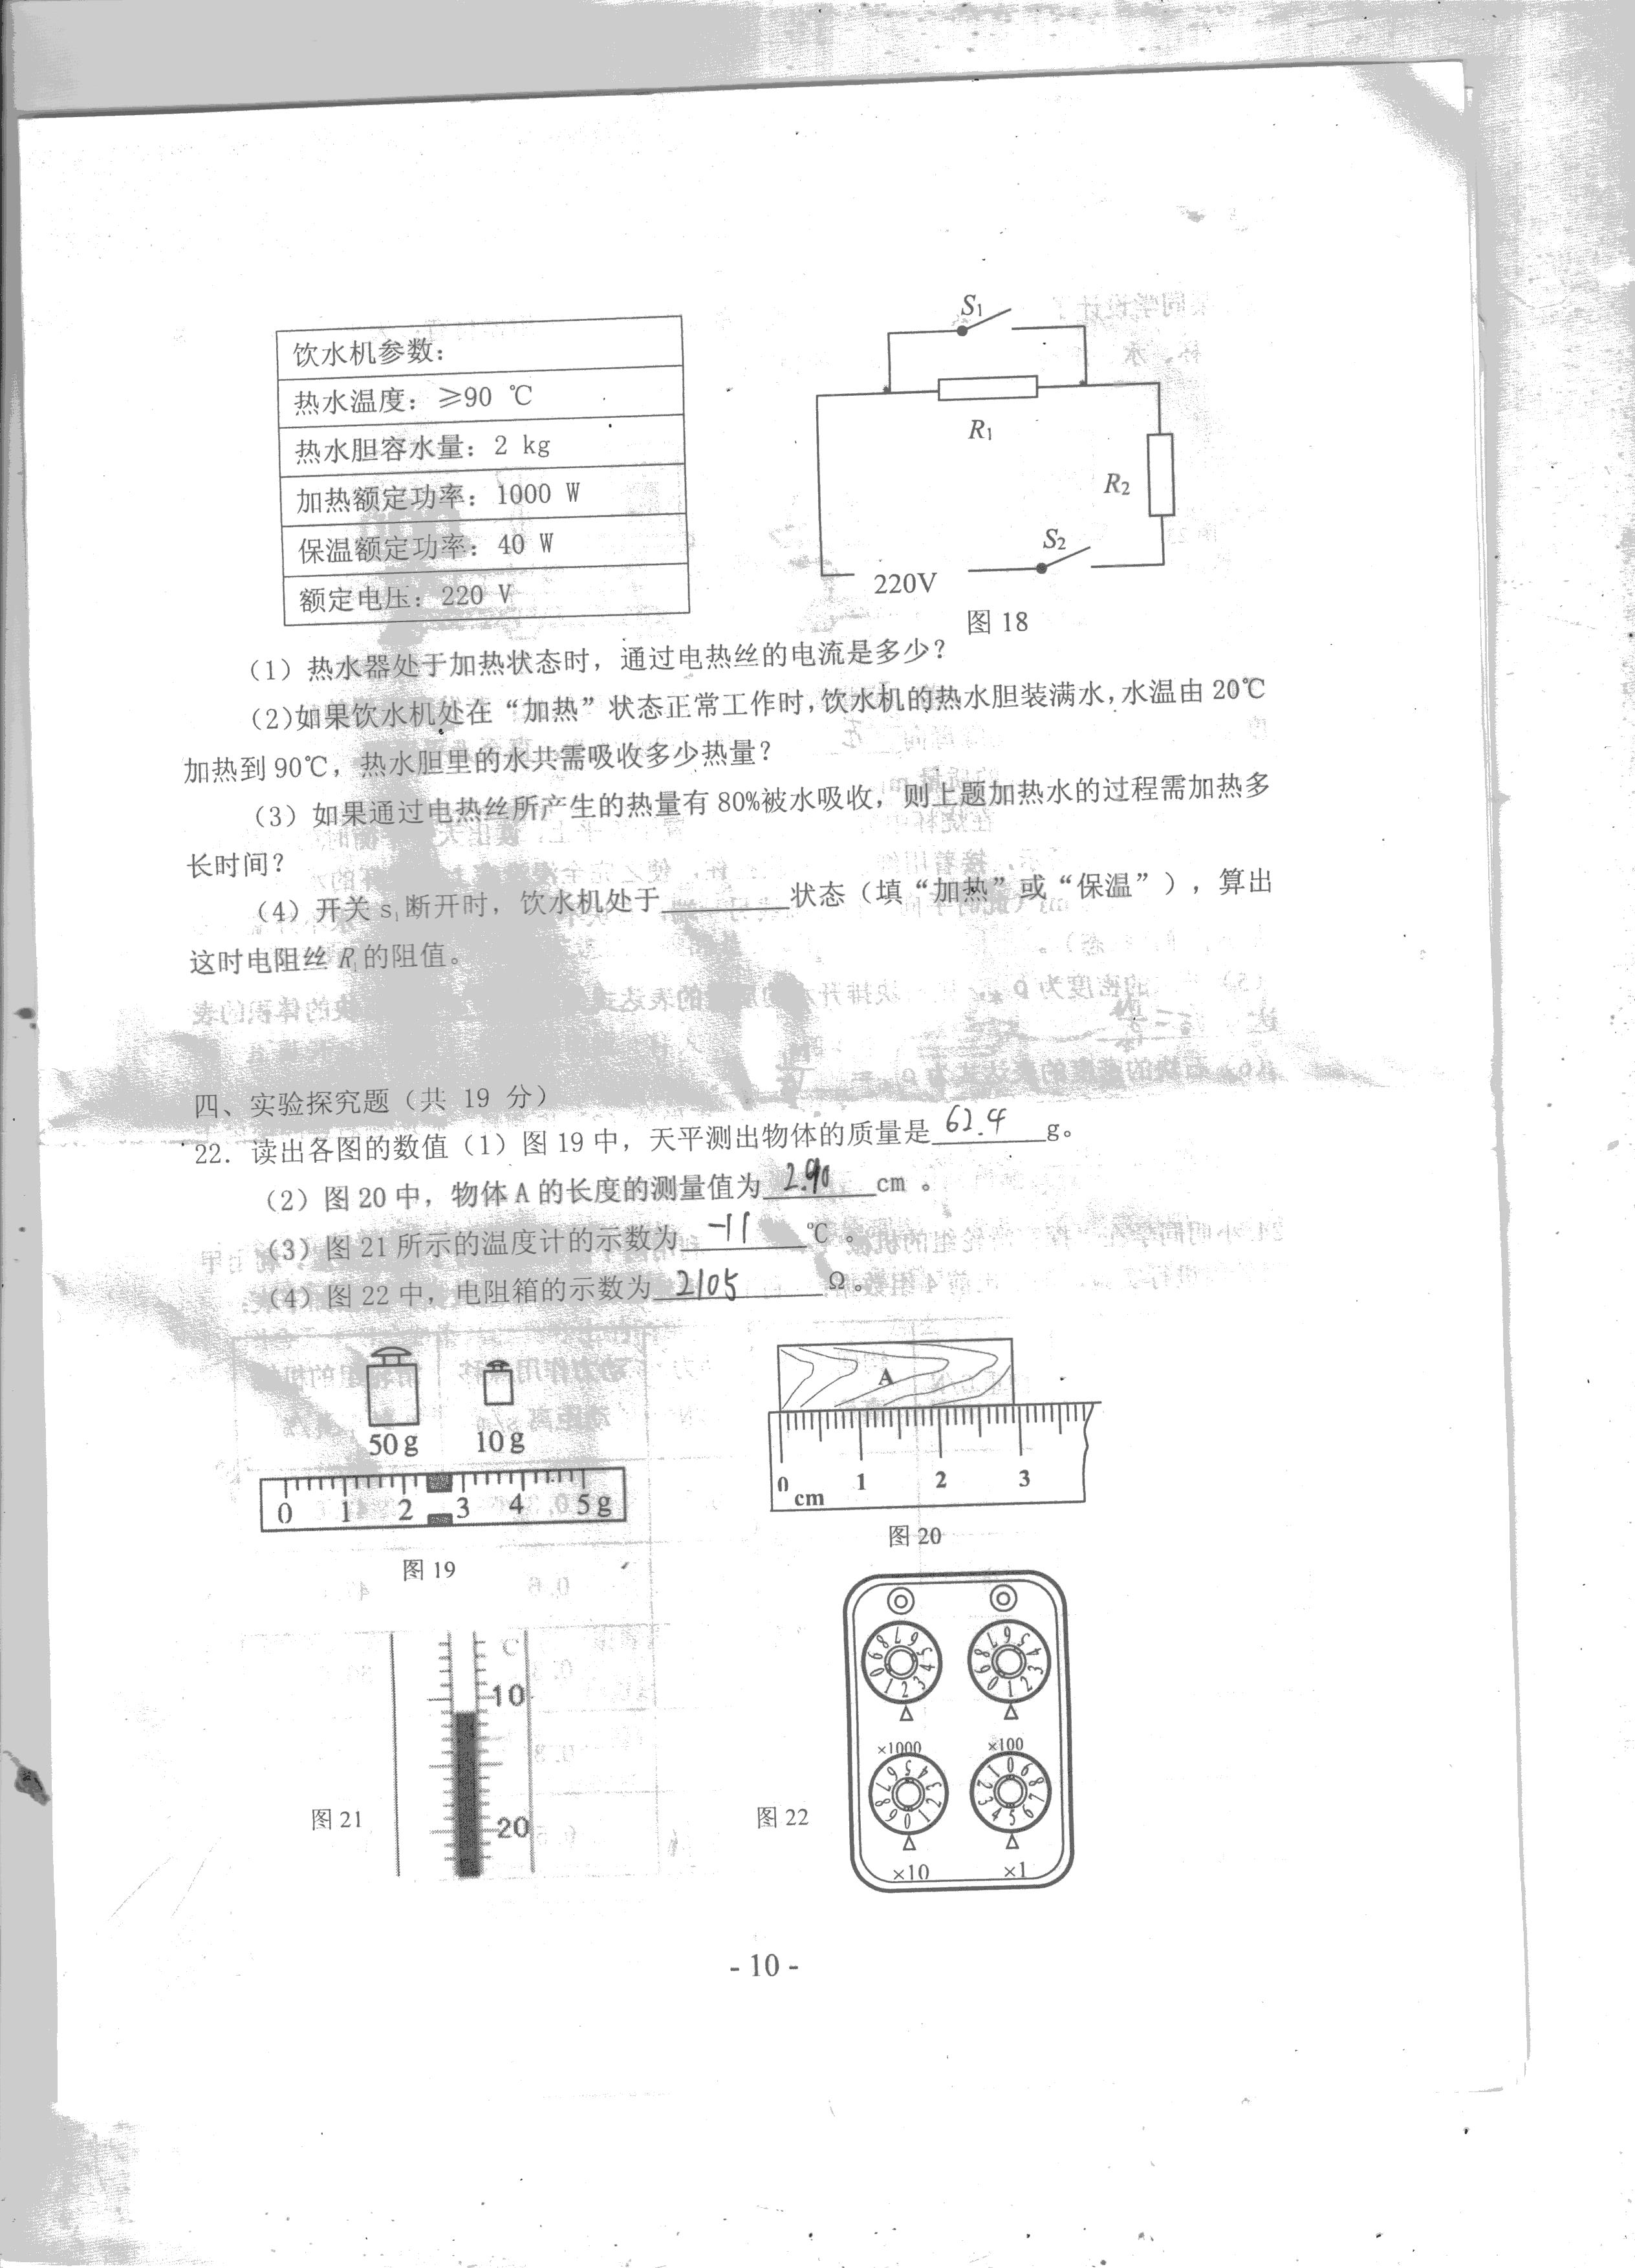 饮水机参数：
热水温度：≥90 ℃
热水胆容水量：2 kg
加热额定功率：1000 W
保温额定功率：40 W
额定电压：220 V
S1
R1
R2
S2
220V
图 18
（1）热水器处于加热状态时，通过电热丝的电流是多少？
（2）如果饮水机处在“加热”状态正常工作时，饮水机的热水胆装满水，水温由 20℃
加热到 90℃，热水胆里的水共需吸收多少热量？
（3）如果通过电热丝所产生的热量有 80%被水吸收，则上题加热水的过程需加热多
长时间？
（4）开关 s1断开时，饮水机处于________状态（填“加热”或“保温”），算出
这时电阻丝 R1的阻值。
四、实验探究题（共 19 分）
22．读出各图的数值（1）图 19 中，天平测出物体的质量是 62.4 g。
（2）图 20 中，物体 A 的长度的测量值为 2.90 cm 。
（3）图 21 所示的温度计的示数为 -11 ℃ 。
（4）图 22 中，电阻箱的示数为 2105 Ω。
50 g 10 g
0 1 2 3 4 5 g
图 19
A
0 1 2 3
cm
图 20
C
10
20
图 21
×1000 ×100
×10 ×1
图 22
- 10 -